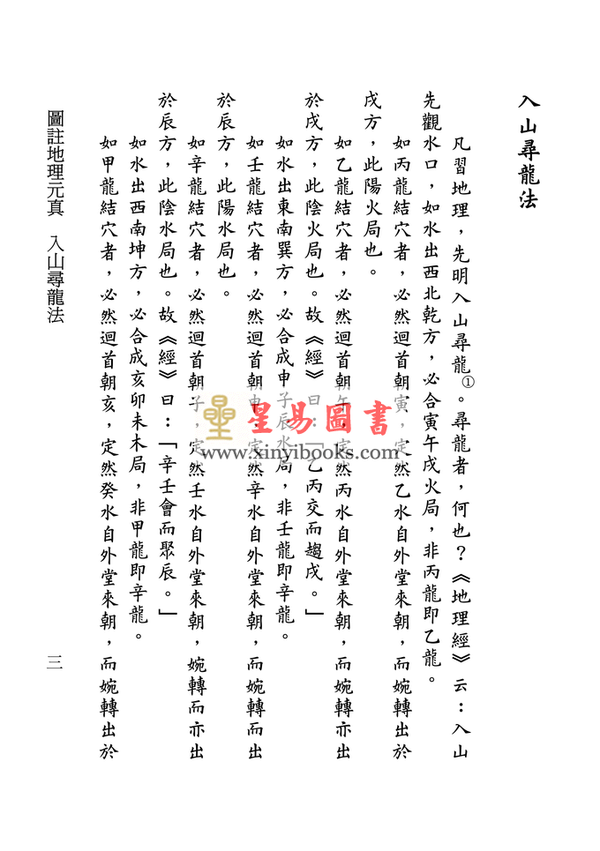 入山尋龍法
凡習地理，先明入山尋龍①。尋龍者，何也？《地理經》云：入山
先觀水口，如水出西北乾方，必合寅午戌火局，非丙龍即乙龍。
如丙龍結穴者，必然迴首朝寅，定然乙水自外堂來朝，而婉轉出於
戌方，此陽火局也。
如乙龍結穴者，必然迴首朝午，定然丙水自外堂來朝，而婉轉亦出
於戌方，此陰火局也。故《經》曰：「乙丙交而趨戌。」
如水出東南巽方，必合成申子辰水局，非壬龍即辛龍。
如壬龍結穴者，必然迴首朝申，定然辛水自外堂來朝，而婉轉而出
於辰方，此陽水局也。
如辛龍結穴者，必然迴首朝子，定然壬水自外堂來朝，婉轉而亦出
於辰方，此陰水局也。故《經》曰：「辛壬會而聚辰。」
如水出西南坤方，必合成亥卯未木局，非甲龍即辛龍。
如甲龍結穴者，必然迴首朝亥，定然癸水自外堂來朝，而婉轉出於
圖註地理元真　入山尋龍法
三
星易圖書
www.xinyibooks.com